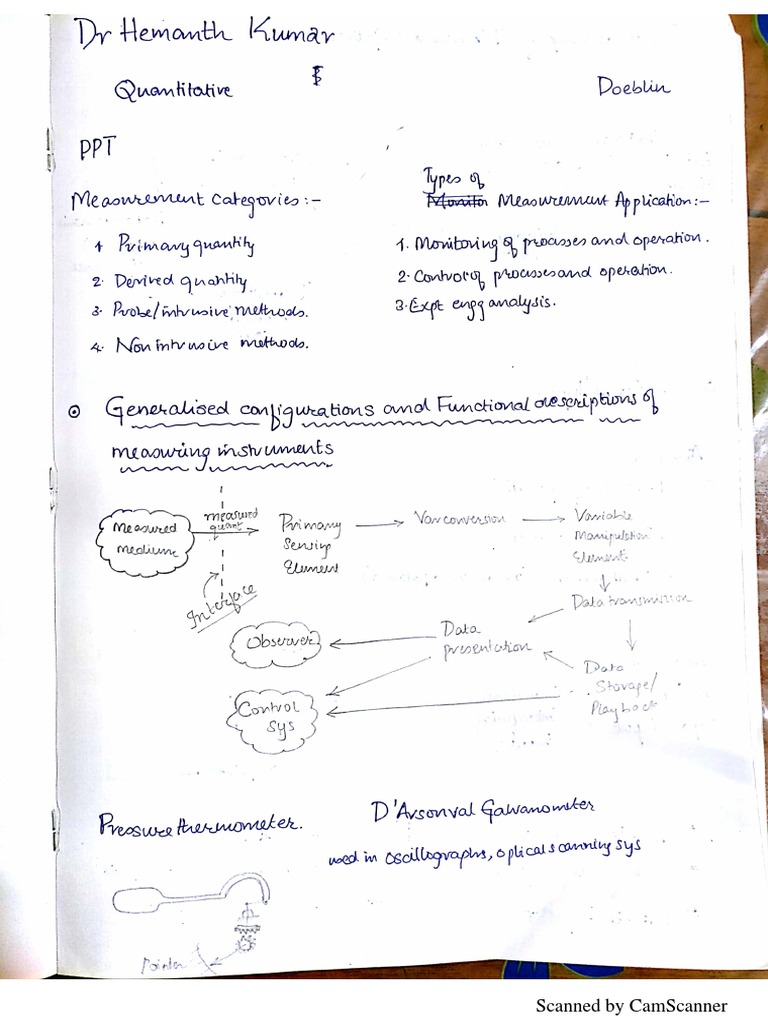 Dr Hemanth Kumar
Quantitative
Doeblin
PPT
Measurement Categories:-
1. Primary quantity
2. Derived quantity
3. Probe/intrusive methods.
4. Non intrusive methods.
Types of
Measurement Application:-
1. Monitoring of processes and operation.
2. Control of processes and operation.
3. Expt engg analysis.
Generalised configurations and Functional descriptions of
measuring instruments
Measured
medium
measured
quant
Interface
Primary
Sensing
Element
Var conversion
Variable
Manipulation
Element
Data transmission
Data
Storage/
Playback
Data
presentation
Observer
Control
sys
Pressure thermometer.
Pointer
D'Arsonval Galvanometer
used in oscillographs, optical scanning sys
Scanned by CamScanner